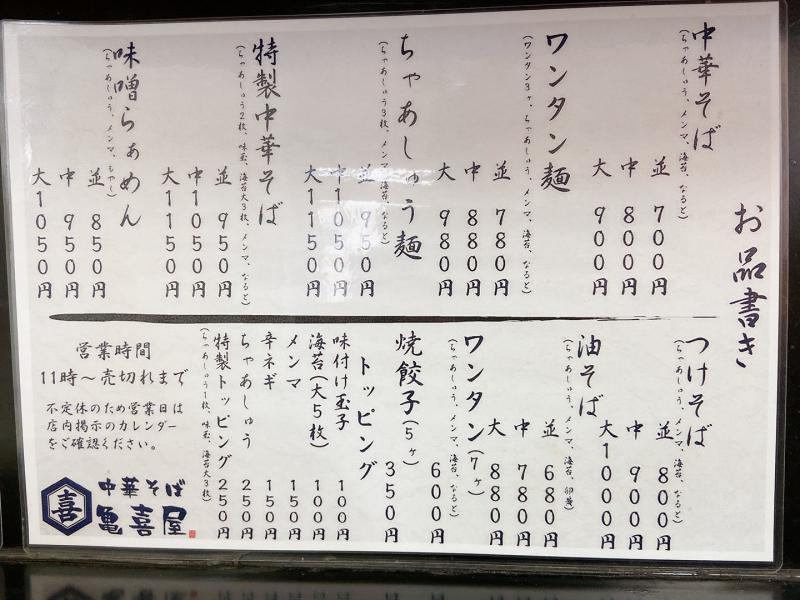 お品書き
中華そば
(ちゃあしゅう、メンマ、海苔、なると)
並 700円
中 800円
大 900円
ワンタン麺
(ワンタン3ヶ、ちゃあしゅう、メンマ、海苔、なると)
並 780円
中 880円
大 980円
ちゃあしゅう麺
(ちゃあしゅう3枚、メンマ、海苔、なると)
並 950円
中1050円
大1150円
特製中華そば
(ちゃあしゅう2枚、味玉、海苔大3枚、メンマ、なると)
並 950円
中1050円
大1150円
味噌らぁめん
(ちゃあしゅう、メンマ、もやし)
並 850円
中 950円
大1050円
つけそば
(ちゃあしゅう、メンマ、海苔、なると)
並 800円
中 900円
大1000円
油そば
(ちゃあしゅう、メンマ、海苔、卵黄)
並 680円
中 780円
大 880円
ワンタン(7ヶ)
(ちゃあしゅう、メンマ、海苔、なると)
600円
焼餃子(5ヶ)
350円
トッピング
味付け玉子 100円
海苔(大5枚) 100円
メンマ 150円
辛ネギ 150円
ちゃあしゅう 250円
特製トッピング 250円
(ちゃあしゅう1枚、味玉、海苔大3枚)
営業時間
11時～売切れまで
不定休のため営業日は
店内掲示のカレンダー
をご確認ください。
喜
中華そば
亀喜屋